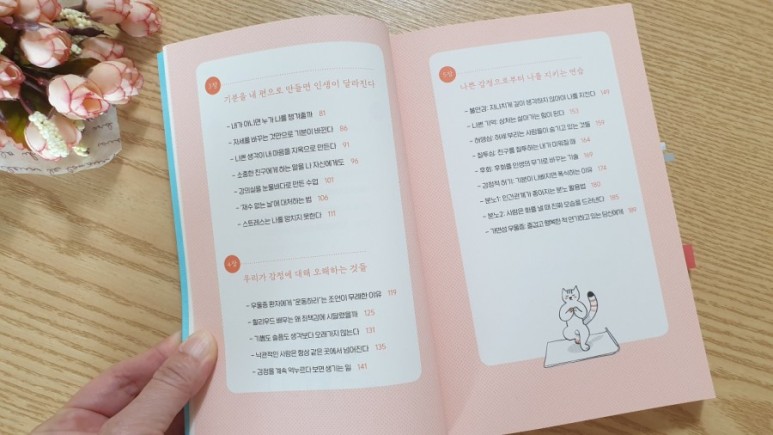 3장
기분을 내 편으로 만들면 인생이 달라진다
- 내가 아니면 누가 나를 챙겨줄까 81
- 자세를 바꾸는 것만으로 기분이 바뀐다 86
- 나쁜 생각이 내 마음을 지옥으로 만든다 91
- 소중한 친구에게 하는 말을 나 자신에게도 96
- 강의실을 눈물바다로 만든 수업 101
- '재수 없는 날'에 대처하는 법 106
- 스트레스는 나를 망치지 못한다 111
4장
우리가 감정에 대해 오해하는 것들
- 우울증 환자에게 "운동하라"는 조언이 무례한 이유 119
- 할리우드 배우는 왜 죄책감에 시달렸을까 125
- 기쁨도 슬픔도 생각보다 오래가지 않는다 131
- 낙관적인 사람은 항상 같은 곳에서 넘어진다 135
- 감정을 계속 억누르다 보면 생기는 일 141
5장
나쁜 감정으로부터 나를 지키는 연습
- 불안감: 지나치게 깊이 생각하지 않아야 나를 지킨다 149
- 나쁜 기억: 상처는 살아가는 힘이 된다 153
- 허영심: 허세 부리는 사람들이 숨기고 있는 것들 159
- 질투심: 친구를 질투하는 내가 미워질 때 164
- 후회: 후회를 인생의 무기로 바꾸는 기술 169
- 감정적 허기: 기분이 나빠지면 폭식하는 이유 174
- 분노1: 인간관계가 좋아지는 분노 활용법 180
- 분노2: 사람은 화를 낼 때 진짜 모습을 드러낸다 185
- 가면성 우울증: 즐겁고 행복한 척 연기하고 있는 당신에게 189